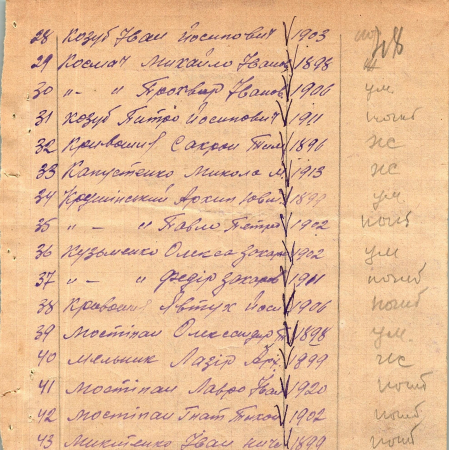 28 Козуб Іван Йосипович 1903
29 Космач Михайло Іванов 1898 
30 " - " Прохвор Іванов 1906 ум
31 Козуб Питро Йосипович 1911 погиб
32 Кривошия Сахрон Тим 1896 жс
33 Капустенко Микола М 1913 жс
34 Архип 1899 ум
35 " - " Павло Петро 1902 погиб
36 Кузьменко Олекса Захаров 1902 ум
37 " - " Федір Захаров 1901 погиб
38 Кривошия Явтух Йосип 1906 погиб
39 Мостіпан Олександр 1898 ум.
40 Мельник Лазір 1899 жс
41 Мостіпан Лавро Іван 1920 погиб
42 Мостіпан Гнат Тихон 1902 погиб
43 Микітенко Іван 1899 погиб